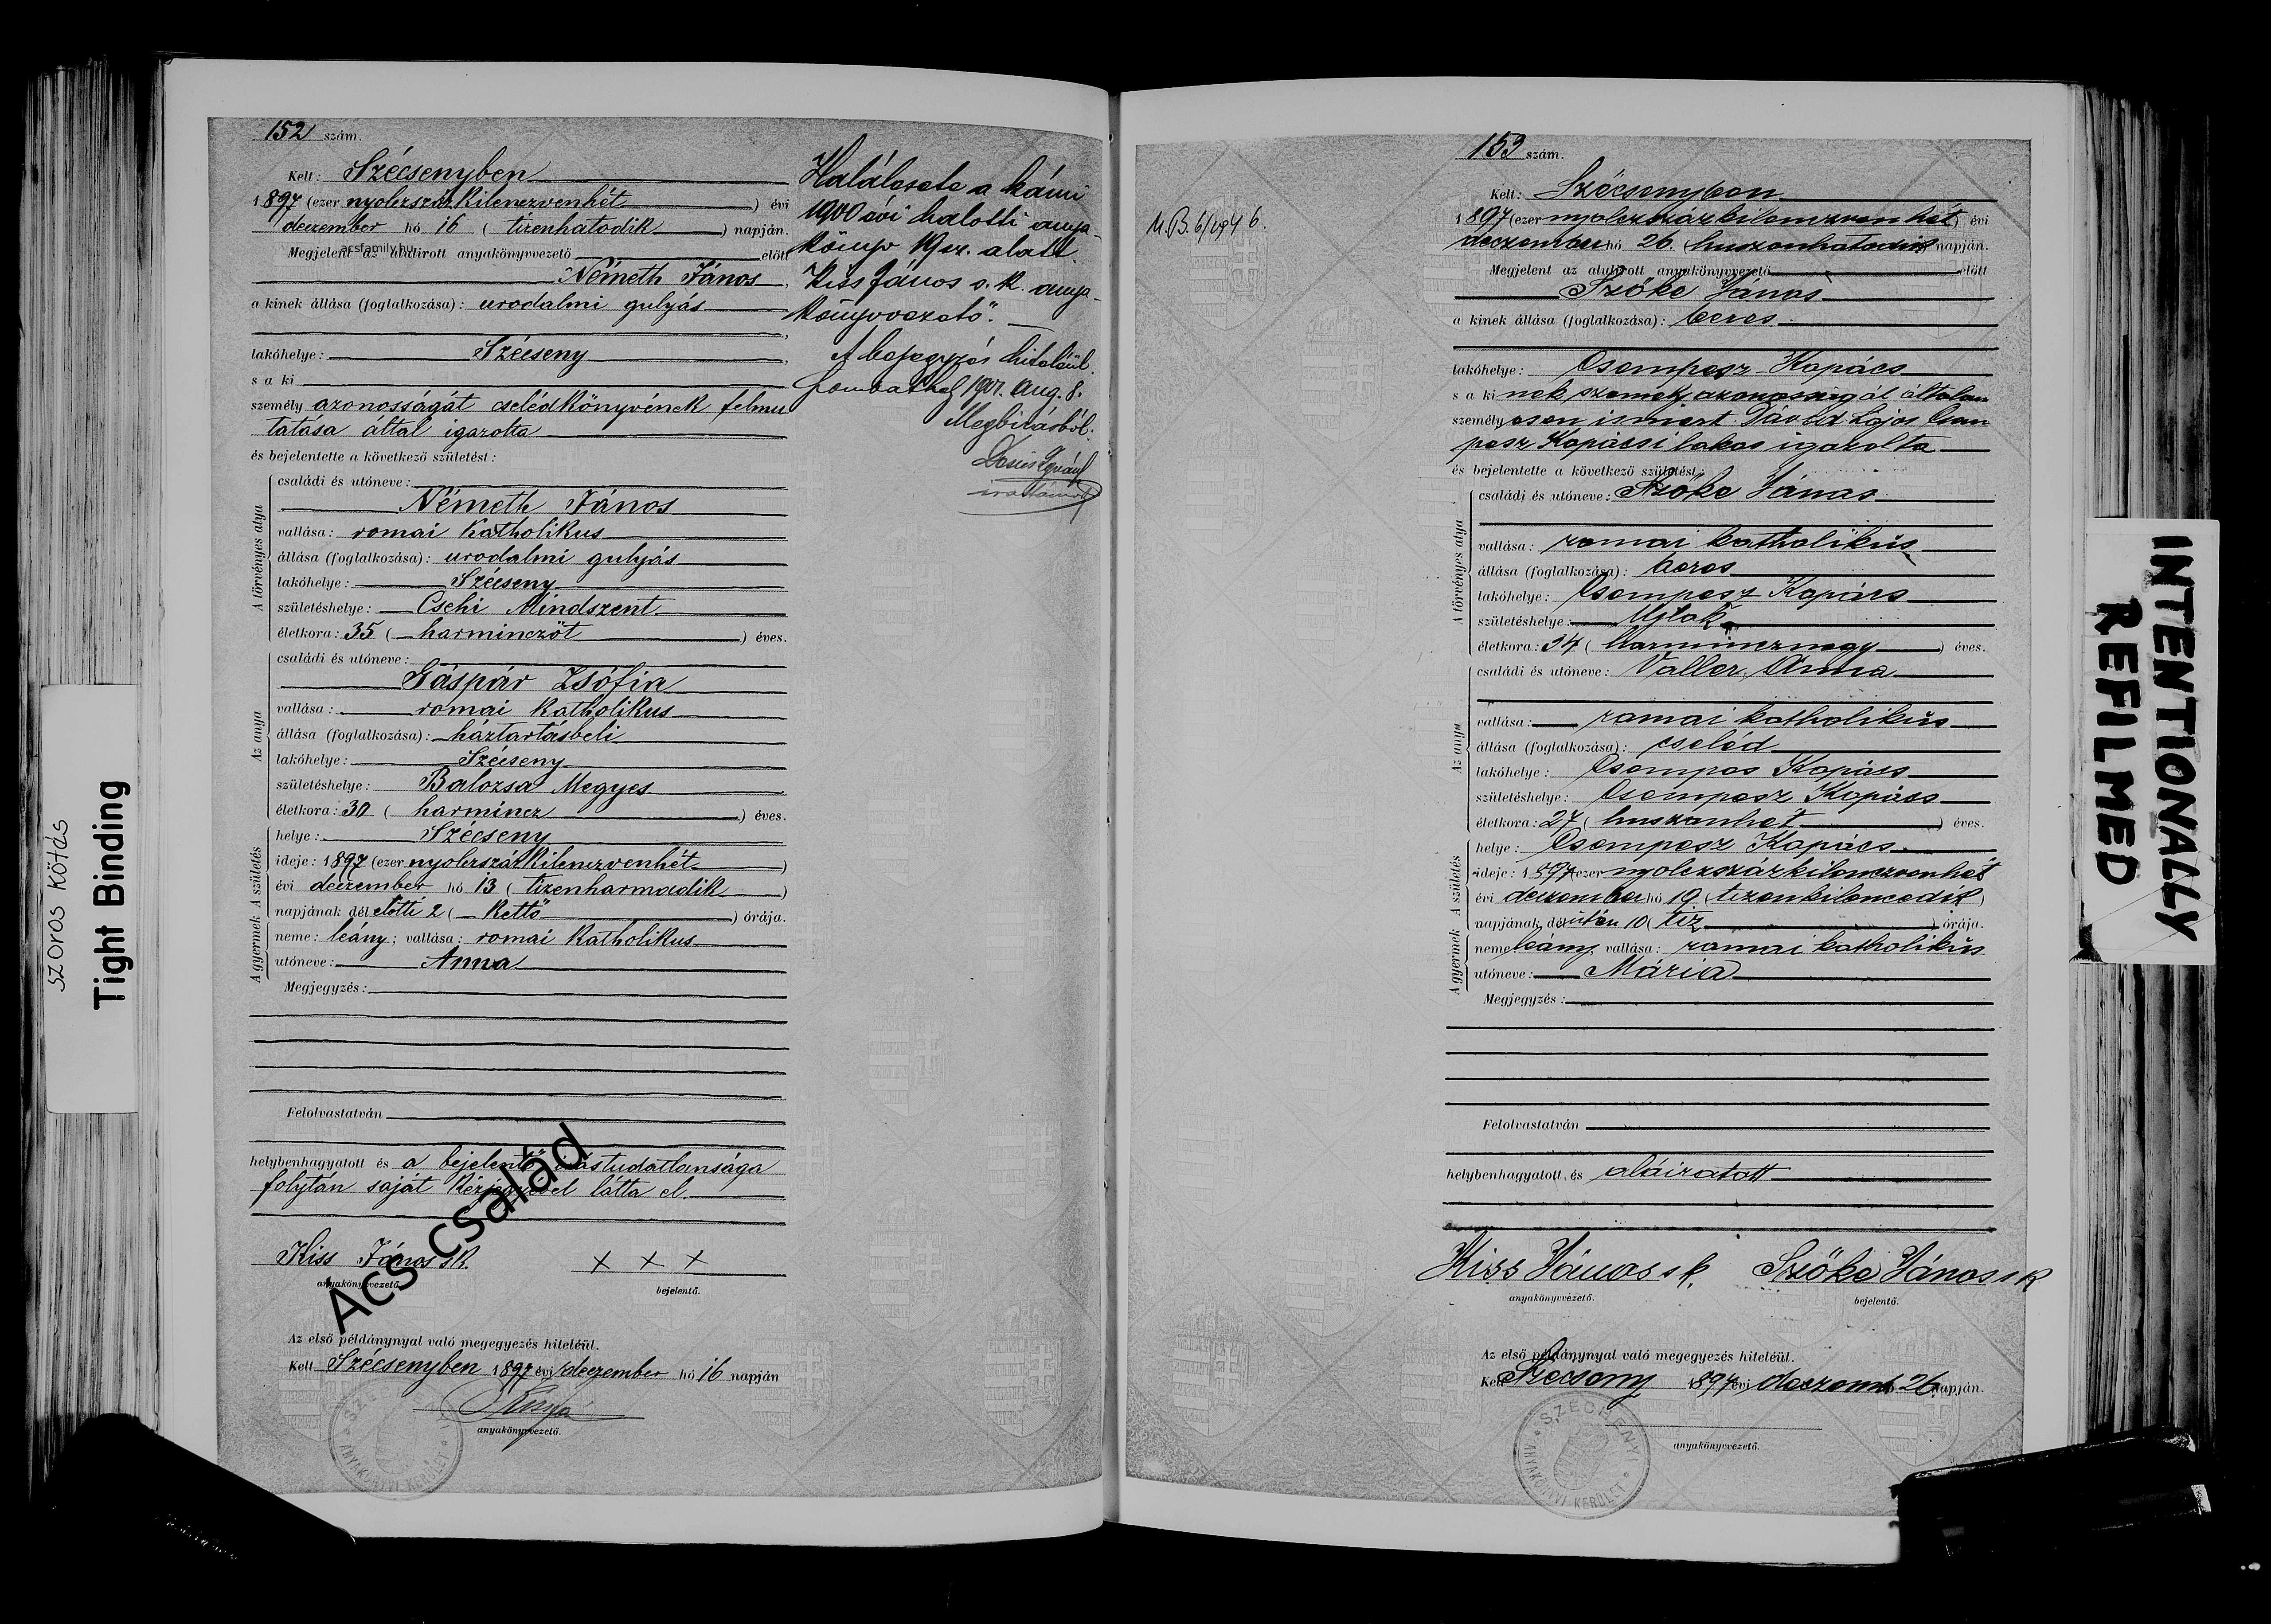 szoros kötés
Tight Binding
152 szám.
Kelt: Szécsenyben
1897 (ezer nyolczszáz kilenczvenhét ) évi
deczember hó 16 ( tizenhatodik ) napján.
acsfamily.hu
Megjelent az alulirott anyakönyvvezető előtt
Németh János,
a kinek állása (foglalkozása): urodalmi gulyás
lakóhelye: Szécseny,
s a ki
személy azonosságát cselédkönyvének felmu
tatása által igazolta
és bejelentette a következő születést:
A törvényes atya
családi és utóneve:
Németh János
vallása: romai katholikus
állása (foglalkozása): urodalmi gulyás
lakóhelye: Szécseny
születéshelye: Csehi Mindszent
életkora: 35 ( harminczöt ) éves.
Az anya
családi és utóneve:
Gáspár Zsófia
vallása: romai katholikus
állása (foglalkozása): háztartásbeli
lakóhelye: Szécseny
születéshelye: Balozsa Megyes
életkora: 30 ( harmincz ) éves.
A gyermek A születés
helye: Szécseny
ideje: 1897 (ezer nyolczszáz kilenczvenhét )
évi deczember hó 13 ( tizenharmadik )
napjának délelőtti 2 ( kettő ) órája.
neme: leány; vallása: romai katholikus
utóneve: Anna
Megjegyzés:
Felolvastatván
helybenhagyatott és a bejelentő irástudatlansága
folytán saját kézjegyével látta el.
Kiss János sk.
anyakönyvvezető.
x x x
bejelentő.
Acs család
Az első példánynyal való megegyezés hiteléül.
Kelt Szécsenyben 1897 évi deczember hó 16 napján
anyakönyvvezető.
ANYAKÖNYVI KERÜLET
Halálesete a kámi
1900 évi halotti anya-
könyv 19 sz. alatt.
Kiss János s. k. anya-
könyvvezető".
A bejegyzés hiteléül.
aug. 8.
Megbizásból:
153 szám.
Kelt: Szécsenyben
1897 (ezer nyolczszázkilenczvenhét ) évi
deczember hó 26. ( huszonhatodik ) napján.
Megjelent az alulirott anyakönyvvezető előtt
Szőke János
a kinek állása (foglalkozása): béres
lakóhelye: Csempesz-Kopács
s a ki nek személyazonosságát általan
személy osan ismert Dávid Lajos Csem
pesz Kopácsi lakos igazolta
és bejelentette a következő születést:
A törvényes atya
családi és utóneve: Szőke János
vallása: romai katholikus
állása (foglalkozása): béres
lakóhelye: Csempesz Kopács
születéshelye: Ujlak
életkora: 34 ( harmincznégy ) éves.
Az anya
családi és utóneve: Valler Anna
vallása: romai katholikus
állása (foglalkozása): cseléd
lakóhelye: Csempes Kopács
születéshelye: Csempesz Kopács
életkora: 27 ( huszonhét ) éves.
A gyermek A születés
helye: Csempesz Kopács
ideje: 1897 (ezer nyolczszázkilenczvenhét
évi deczember hó 19 ( tizenkilencedik )
napjának délután 10 ( tiz ) órája.
neme: leány; vallása: romai katholikus
utóneve: Mária
Megjegyzés:
Felolvastatván
helybenhagyatott, és aláiratott
Kiss János sk.
anyakönyvvezető.
Szőke János sk
bejelentő.
Az első példánynyal való megegyezés hiteléül.
Kelt Szécseny 1897 évi deczemb 26 napján.
anyakönyvvezető.
SZECHENYI ANYAKÖNYVI KERÜLET
INTENTIONALLY
REFILMED